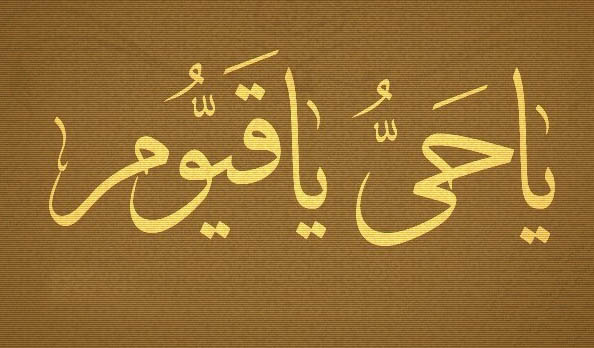 يَا حَيُّ يَا قَيُّومُ